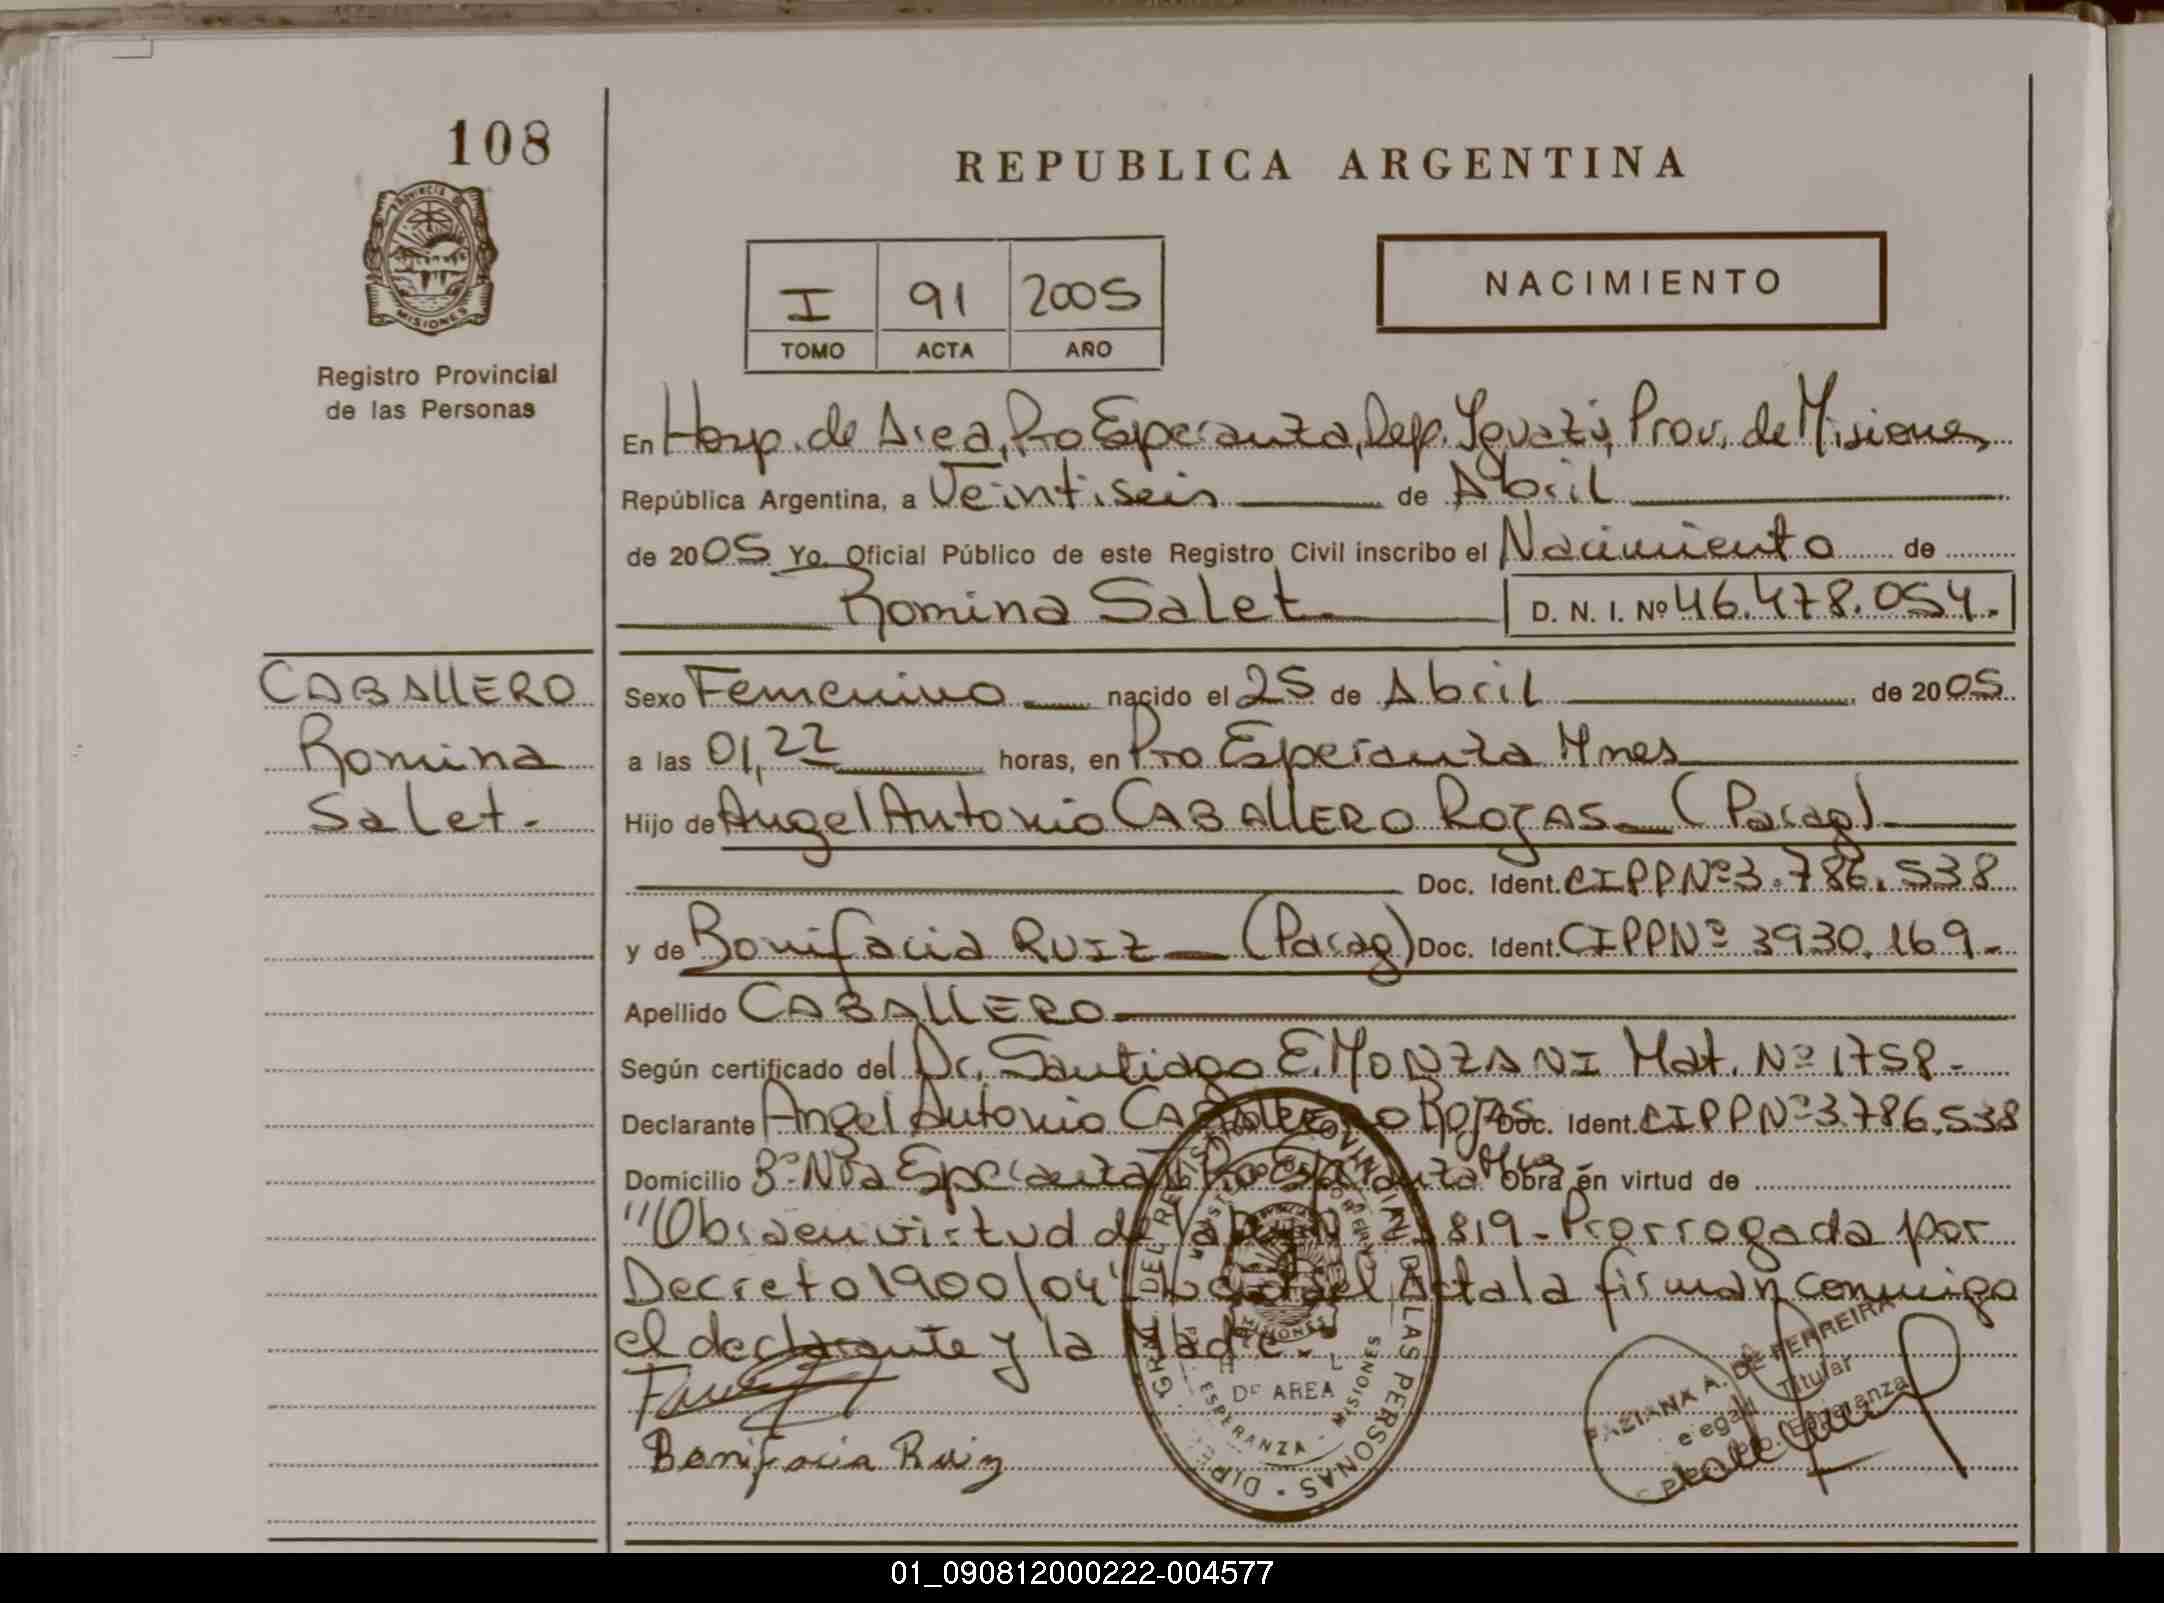 108
REPUBLICA ARGENTINA
PROVINCIA DE
MISIONES
Registro Provincial
de las Personas
I 91 2005
TOMO ACTA AÑO
NACIMIENTO
En Hosp. de Area, Pto Esperanza, Dep. Iguazú, Prov. de Misiones
República Argentina, a Veintiseis de Abril
de 2005 Yo, Oficial Público de este Registro Civil inscribo el Nacimiento de
Romina Salet D. N. I. Nº 46.478.054.
CABALLERO
Romina
Salet.
Sexo Femenino nacido el 25 de Abril de 2005
a las 01,22 horas, en Pto Esperanza Mnes
Hijo de Angel Antonio CABALLERO ROJAS (Parag)
Doc. Ident. CIPPNº 3.786.538
y de Bonifacia RUIZ (Parag) Doc. Ident. CIPPNº 3930.169
Apellido CABALLERO
Según certificado del Dr. Santiago E. MONZANI Mat. Nº 1758
Declarante Angel Antonio CABALLERO ROJAS Doc. Ident. CIPPNº 3.786.538
Domicilio Bº Nva Esperanza Pto Esperanza Mnes Obra en virtud de
"Obra en virtud de 819 - Prorrogada por
Decreto 1900/04" Acta la firman conmigo
el declarante y la Madre.
Bonifacia Ruiz
DE AREA
ESPERANZA - MISIONES
DE LAS PERSONAS
A. DE FERREIRA
Titular
Esperanza
01_090812000222-004577